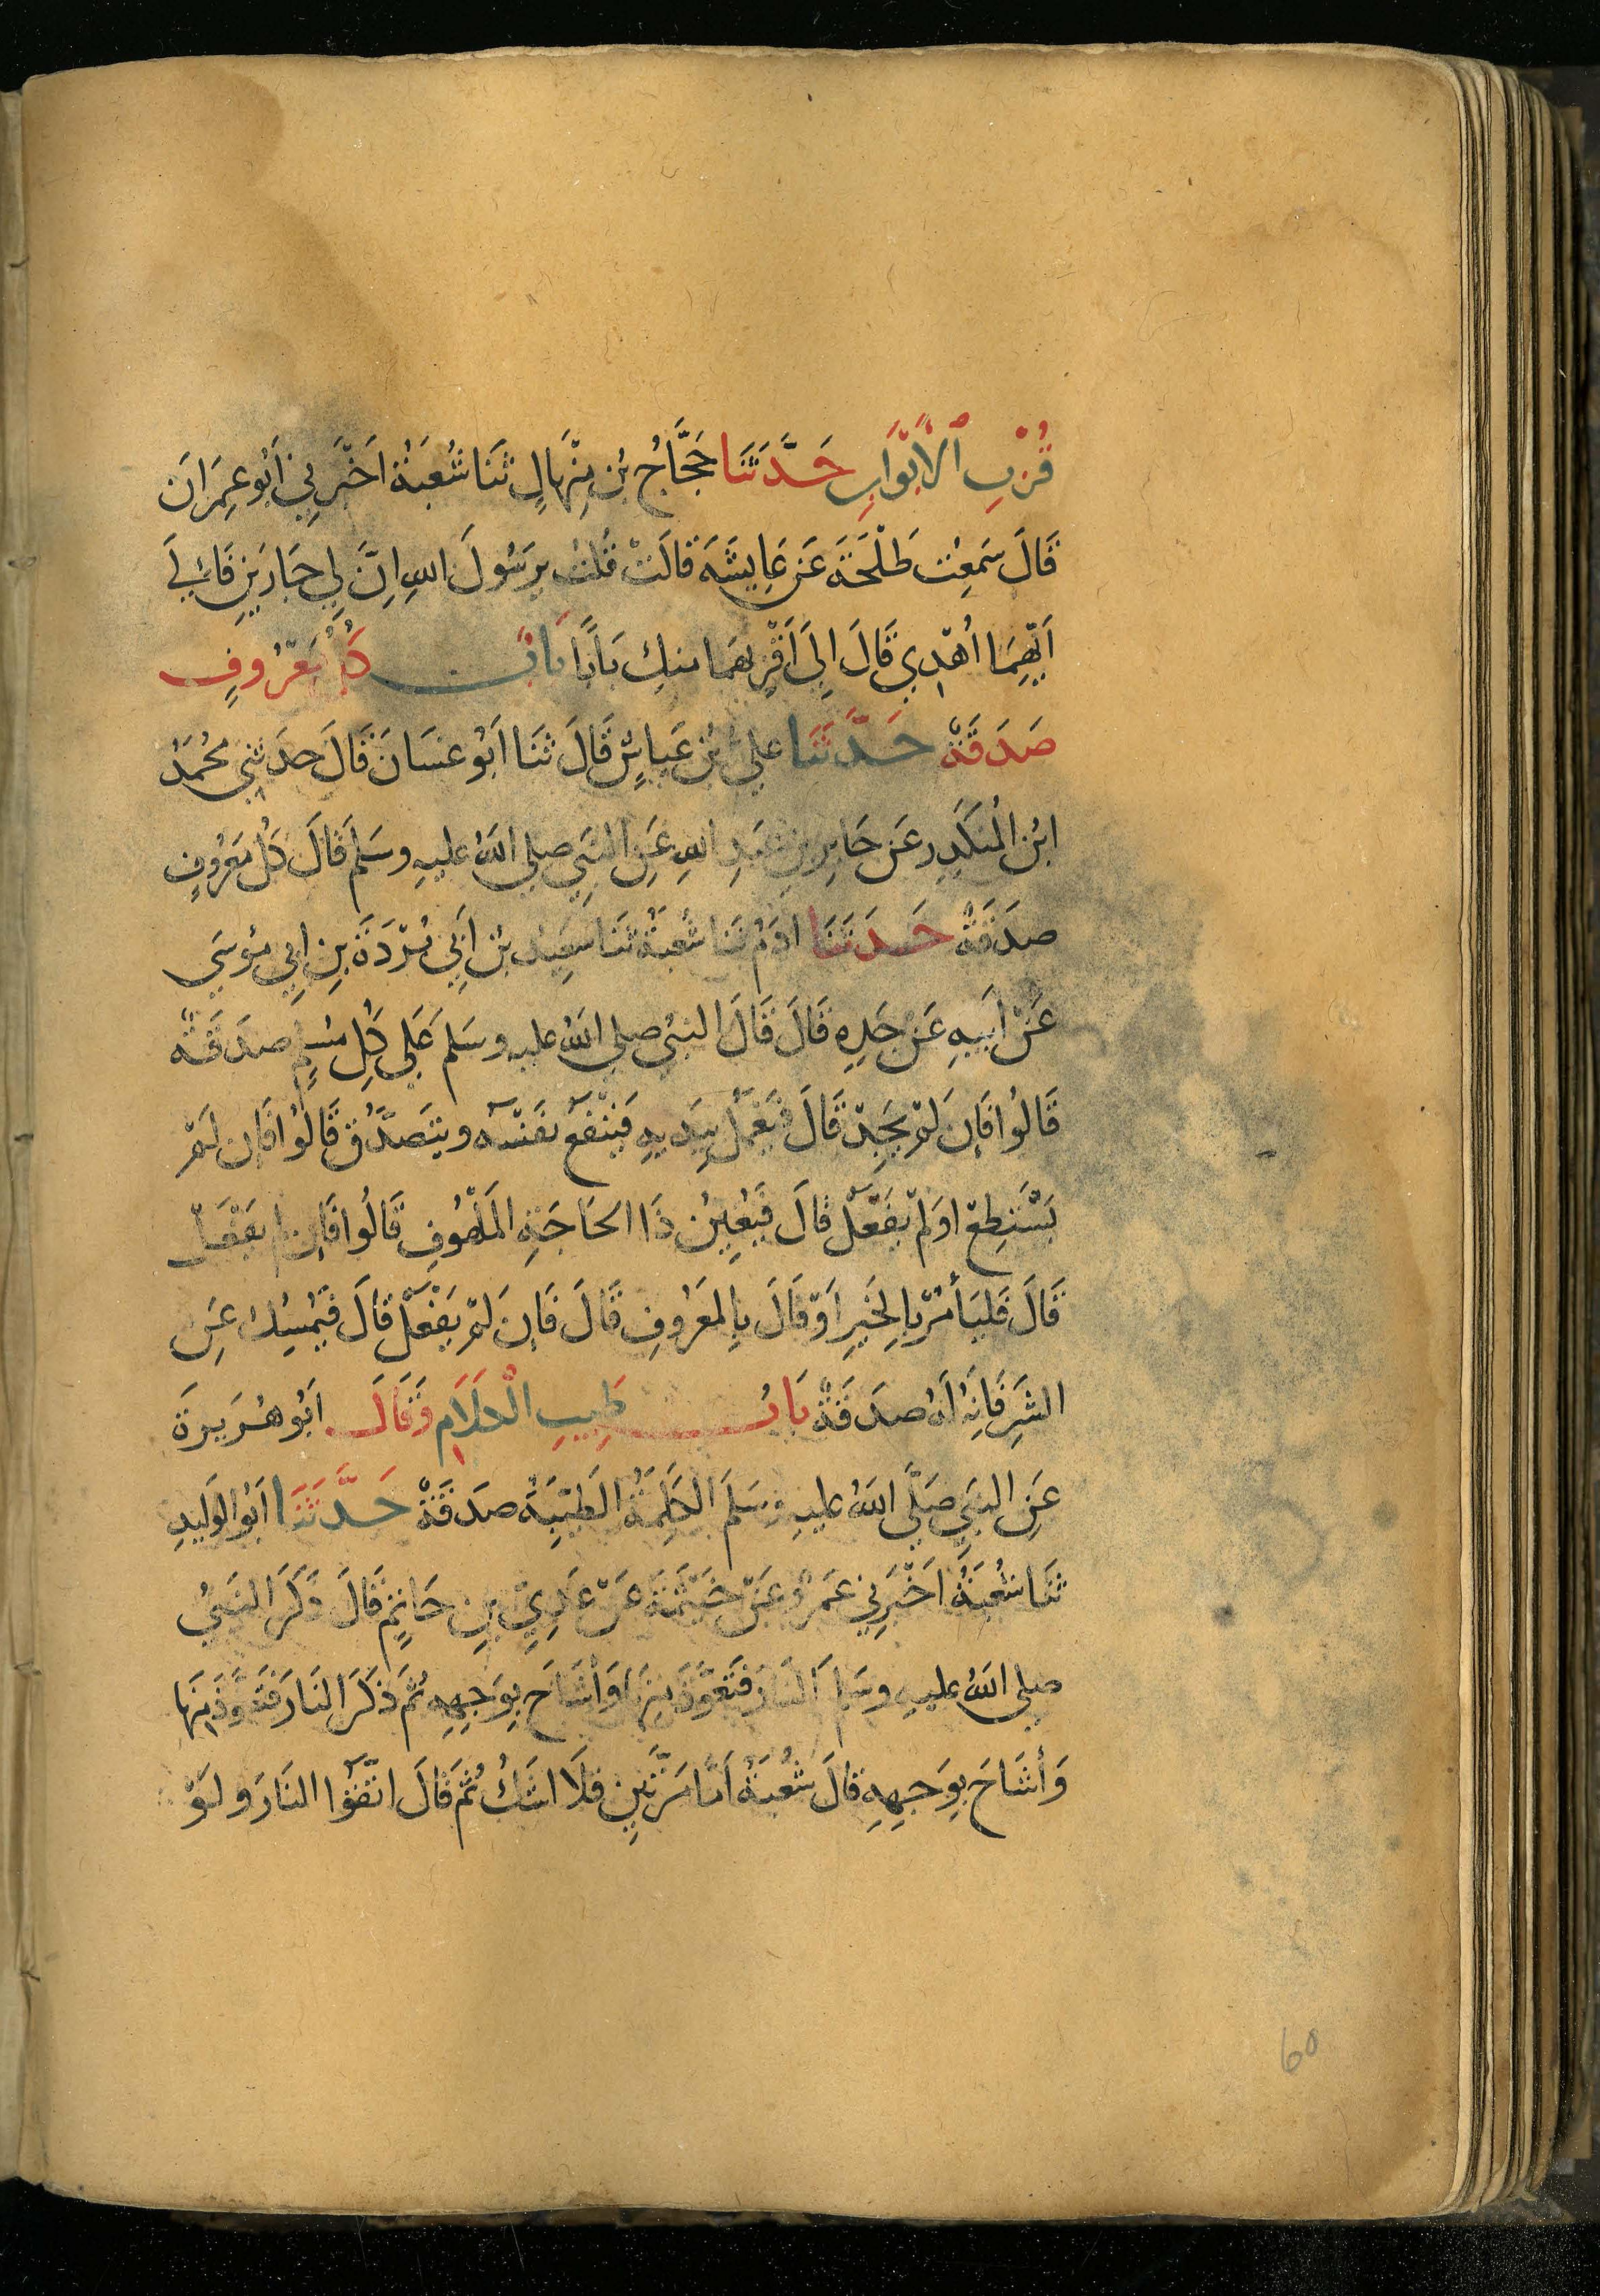 قُرْبِ الْأَبْوَابِ حَدَّثَنَا حَجَّاجُ بْنُ مِنْهَالٍ ثَنَا شُعْبَةُ اَخْبَرَنِي اَبُو عِمْرَانَ
قَالَ سَمِعْتُ طَلْحَةَ عَنْ عَايِشَةَ قَالَتْ قُلْتُ يَرَسُولَ اللهِ اِنَّ لِي جَارَيْنِ فَاِلَى
اَيِّهِمَا اُهْدِي قَالَ اِلَى اَقْرَبِهِمَا مِنْكِ بَابًا بَابٌ كُلُّ مَعْرُوفٍ
صَدَقَةٌ حَدَّثَنَا عَلِيُّ بْنُ عَيَاشٍ قَالَ ثَنَا اَبُو غَسَانَ قَالَ حَدَثَنِي مُحَمَدُ
ابْنُ الْمُنْكَدِرِ عَنْ جَابِرِ بْنِ عَبْدِ اللهِ عَنِ النَبِي صلى اللهُ عليهِ وسَلَمَ قَالَ كُلُ مَعْرُوفٍ
صَدَقَةٌ حَدَثَنَا ادَمُ ثَنَا شُعْبَةُ ثَنَا سَعِيدُ بْنُ اَبِي بُرْدَةَ بِنِ اَبِي مُوسَى
عَنْ اَبِيهِ عَنْ جَدِهِ قَالَ قَالَ النَبِيُ صلى اللهُ عليهِ وسَلَمَ عَلَى كُلِ مُسْلِمٍ صَدَقَةٌ
قَالُوا فَاِنْ لَمْ يَجِدْ قَالَ فَيَعْمَلُ بِيَدَيهِ فَيَنْفَعُ نَفْسَهُ ويَتَصَدَّقُ قَالُوا فَاِن لَمْ
يَسْتَطِعْ اولَمْ يَفْعَلْ قَالَ فَيُعِينُ ذَا الحَاجَةِ المَلْهُوفِ قَالُوا فَاِن لم يَفْعَلْ
قَالَ فَليَأمُرْ بِالخَيرِ اَوْ قَالَ بِالمَعْرُوفِ قَالَ فَاِنَ لَمْ يَفْعَلْ قَالَ فَيُمْسِكُ عَنِ
الشَرِ فَاِنَهُ لَهُ صَدَقَةٌ بَابُ طِيبِ الْكَلَامِ وَقَالَ اَبُو هُرَيرَةَ
عَنِ النَبِيِ صَلَّى اللهُ عليهِ وسَلَمَ الكَلِمَةُ الطَيِّبَةُ صَدَقَةٌ حَدَّثَنَا اَبُو الوَلِيدِ
ثَنَا شُعْبَةُ اَخْبَرَنِي عَمْرٌو عَنْ خَيْثَمَةَ عَنْ عَدِيِّ بِنِ حَاتِمٍ قَالَ ذَكَرَ النَبِيُ
صلى اللهُ عليهِ وسَلمَ النَارَ فَتَعَوَّذَ مِنْهَا وَأشَاحَ بِوَجهِهِ ثُمَ ذَكَرَ النَارَ فَتَعَوَّذَ مِنْهَا
وَأشَاحَ بِوَجهِهِ قَالَ شُعْبَةُ اَمَا مَرَّتَينِ فَلَا اشُكُ ثُمَ قَالَ اتَّقُوا النَارَ ولَوْ
60